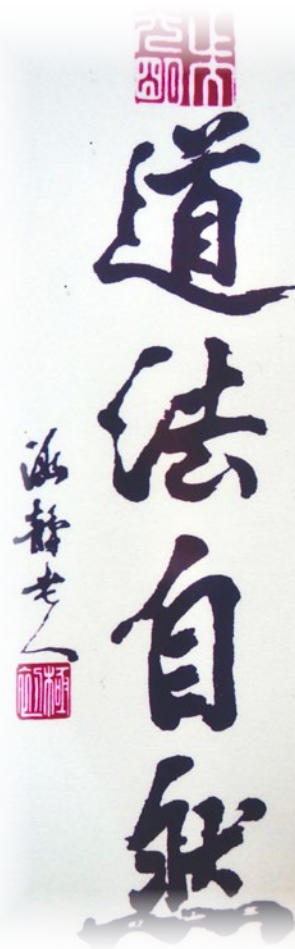 道法自然
涵靜老人